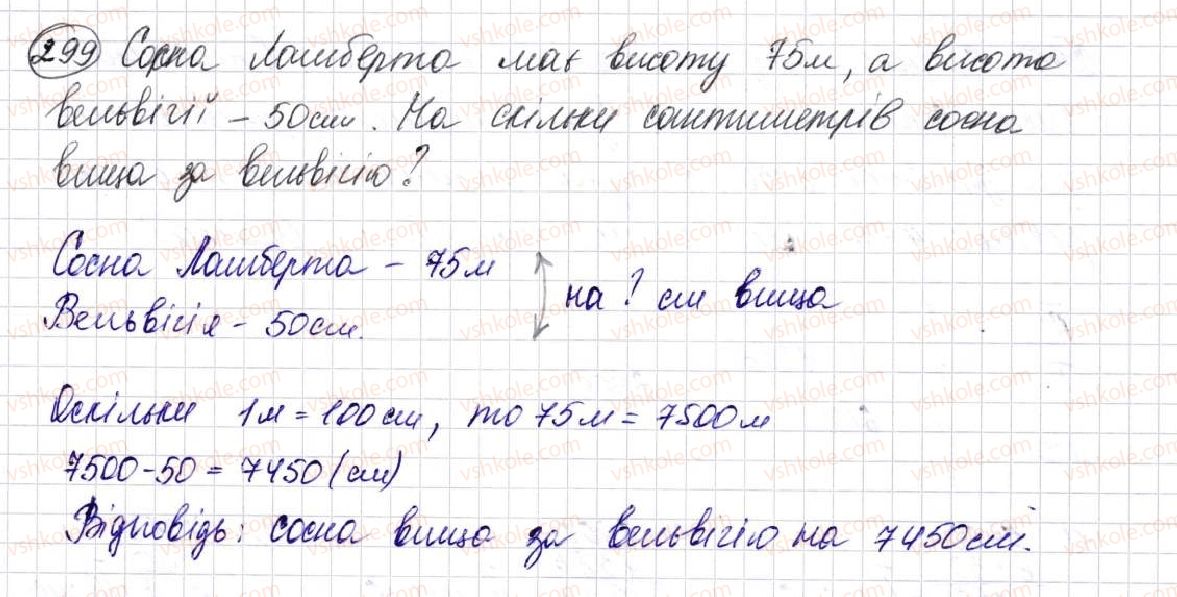 299 Сосна Ламберта має висоту 75м, а висота
вельвігії – 50см. На скільки сантиметрів сосна
вища за вельвігію?
Сосна Ламберта – 75м
на ? см вища
Вельвігія – 50см.
Оскільки 1м = 100см, то 75м = 7500м
7500-50 = 7450 (см)
Відповідь: сосна вища за вельвігію на 7450см.